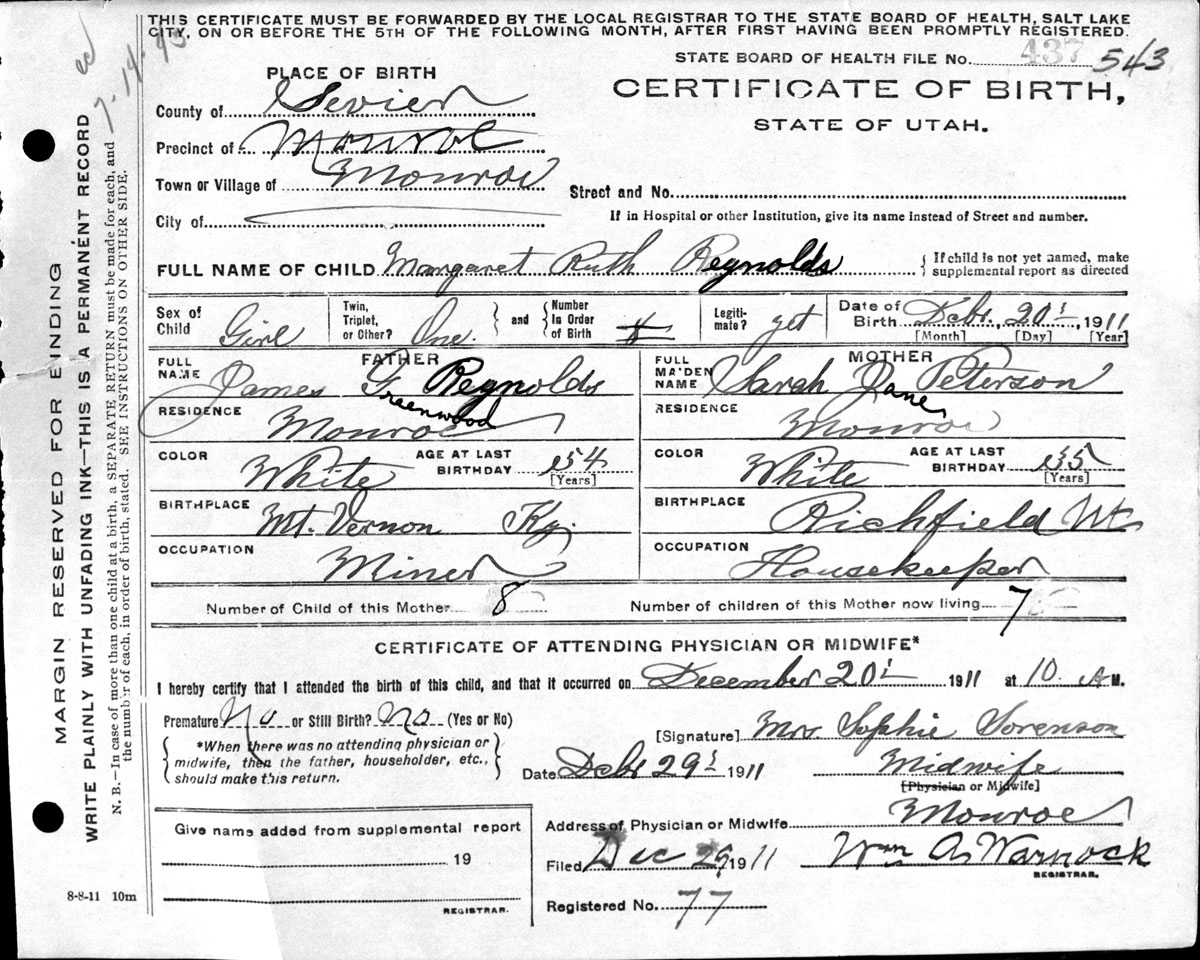 THIS CERTIFICATE MUST BE FORWARDED BY THE LOCAL REGISTRAR TO THE STATE BOARD OF HEALTH, SALT LAKE
CITY, ON OR BEFORE THE 5TH OF THE FOLLOWING MONTH, AFTER FIRST HAVING BEEN PROMPTLY REGISTERED.
STATE BOARD OF HEALTH FILE No. 437 543
PLACE OF BIRTH
CERTIFICATE OF BIRTH,
STATE OF UTAH.
County of Sevier
Precinct of Monroe
Town or Village of Monroe
Street and No.
City of
If in Hospital or other Institution, give its name instead of Street and number.
FULL NAME OF CHILD Margaret Ruth Reynolds { If child is not yet named, make
supplemental report as directed
Sex of Child Girl Twin, Triplet, or Other? One } and { Number In Order of Birth Legiti-mate? yet Date of Birth Debr. 20t, 1911
[Month] [Day] [Year]
FATHER
FULL NAME James G Reynolds
Greenwood
MOTHER
FULL MAIDEN NAME Sarah Jane Peterson
RESIDENCE Monroe
RESIDENCE Monroe
COLOR White AGE AT LAST BIRTHDAY 54 [Years]
COLOR White AGE AT LAST BIRTHDAY 35 [Years]
BIRTHPLACE Mt. Vernon Ky.
BIRTHPLACE Richfield Ut
OCCUPATION Miner
OCCUPATION Housekeeper
Number of Child of this Mother 8 Number of children of this Mother now living 7
CERTIFICATE OF ATTENDING PHYSICIAN OR MIDWIFE*
I hereby certify that I attended the birth of this child, and that it occurred on December 20t 1911 at 10 A M.
Premature No or Still Birth? No (Yes or No)
{ *When there was no attending physician or
midwife, then the father, householder, etc.,
should make this return. }
[Signature] Mrs Sophie Sorenson
Date Debr 29t 1911 Midwife
[Physician or Midwife]
Give name added from supplemental report
19
REGISTRAR.
Address of Physician or Midwife Monroe
Filed Dec 29, 1911 Wm A. Warnock
REGISTRAR.
Registered No. 77
8-8-11 10m
MARGIN RESERVED FOR BINDING
WRITE PLAINLY WITH UNFADING INK—THIS IS A PERMANENT RECORD
N. B.—In case of more than one child at a birth, a SEPARATE RETURN must be made for each, and
the number of each, in order of birth, stated. SEE INSTRUCTIONS ON OTHER SIDE.